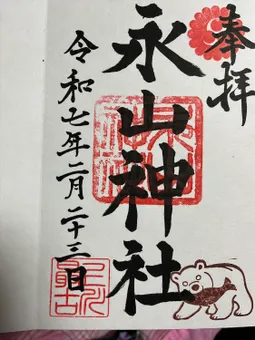 奉拝
永山神社
令和七年二月二十三日